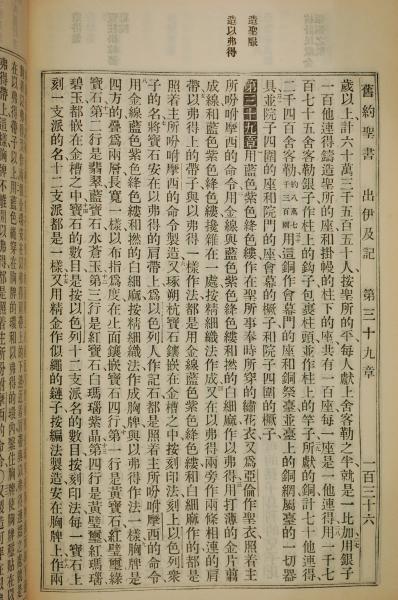 舊約聖書　出伊及記　第三十九章　一百三十六
歲以上計六十萬三千五百五十人按聖所的平每人獻上舍客勒之半就是一比加用銀子
一百他連得鑄造聖所的座和掛幔的柱下的座共有一百座每一座是一他連得用一千七
百七十五舍客勒銀子作柱上的鈎子包裹柱頭並作柱上的竿子所獻的銅計七十他連得
二千四百舍客勒用這銅作會幕門的座和銅祭臺並臺上的銅網屬臺的一切器
具並院子四圍的座和院門的座會幕的橛子和院子四圍的橛子
造聖服
第三十九章用藍色紫色絳色縷作在聖所事奉時所穿的繡花衣又爲亞倫作聖衣照着主
造以弗得
所吩咐摩西的命令用金線與藍色紫色絳色縷和撚的白細麻作以弗得用打薄的金片剪
成線和藍色紫色絳色縷攙雜在一處按精細織法作成又在以弗得兩旁作兩條相連的肩
帶以弗得上的帶子與以弗得一樣作法都是用金線藍色紫色絳色縷和白細麻作的都是
照着主所吩咐摩西的命令製造又琢朔杭寶石鑲嵌在金槽之中按刻印法刻上以色列衆
子的名將寶石安在以弗得的肩帶上爲以色列人作記石都是照着主所吩咐摩西的命令
用金線藍色紫色絳色縷和撚的白細麻按精細織法作成胸牌與以弗得作法一樣胸牌是
四方的疊爲兩層長寬一樣以布指爲度在上面鑲嵌寶石四行第一行是黃寶石紅璧璽綠
寶石第二行是翡翠藍寶石水蒼玉第三行是紅寶石白瑪瑙紫晶第四行是黃璧璽紅瑪瑙
碧玉都嵌在金槽之中寶石的數目是按以色列十二支派名的數目按刻印法每一寶石上
刻一支派的名十二支派都是一樣又用精金作似繩的鏈子按編法製造安在胸牌上作兩